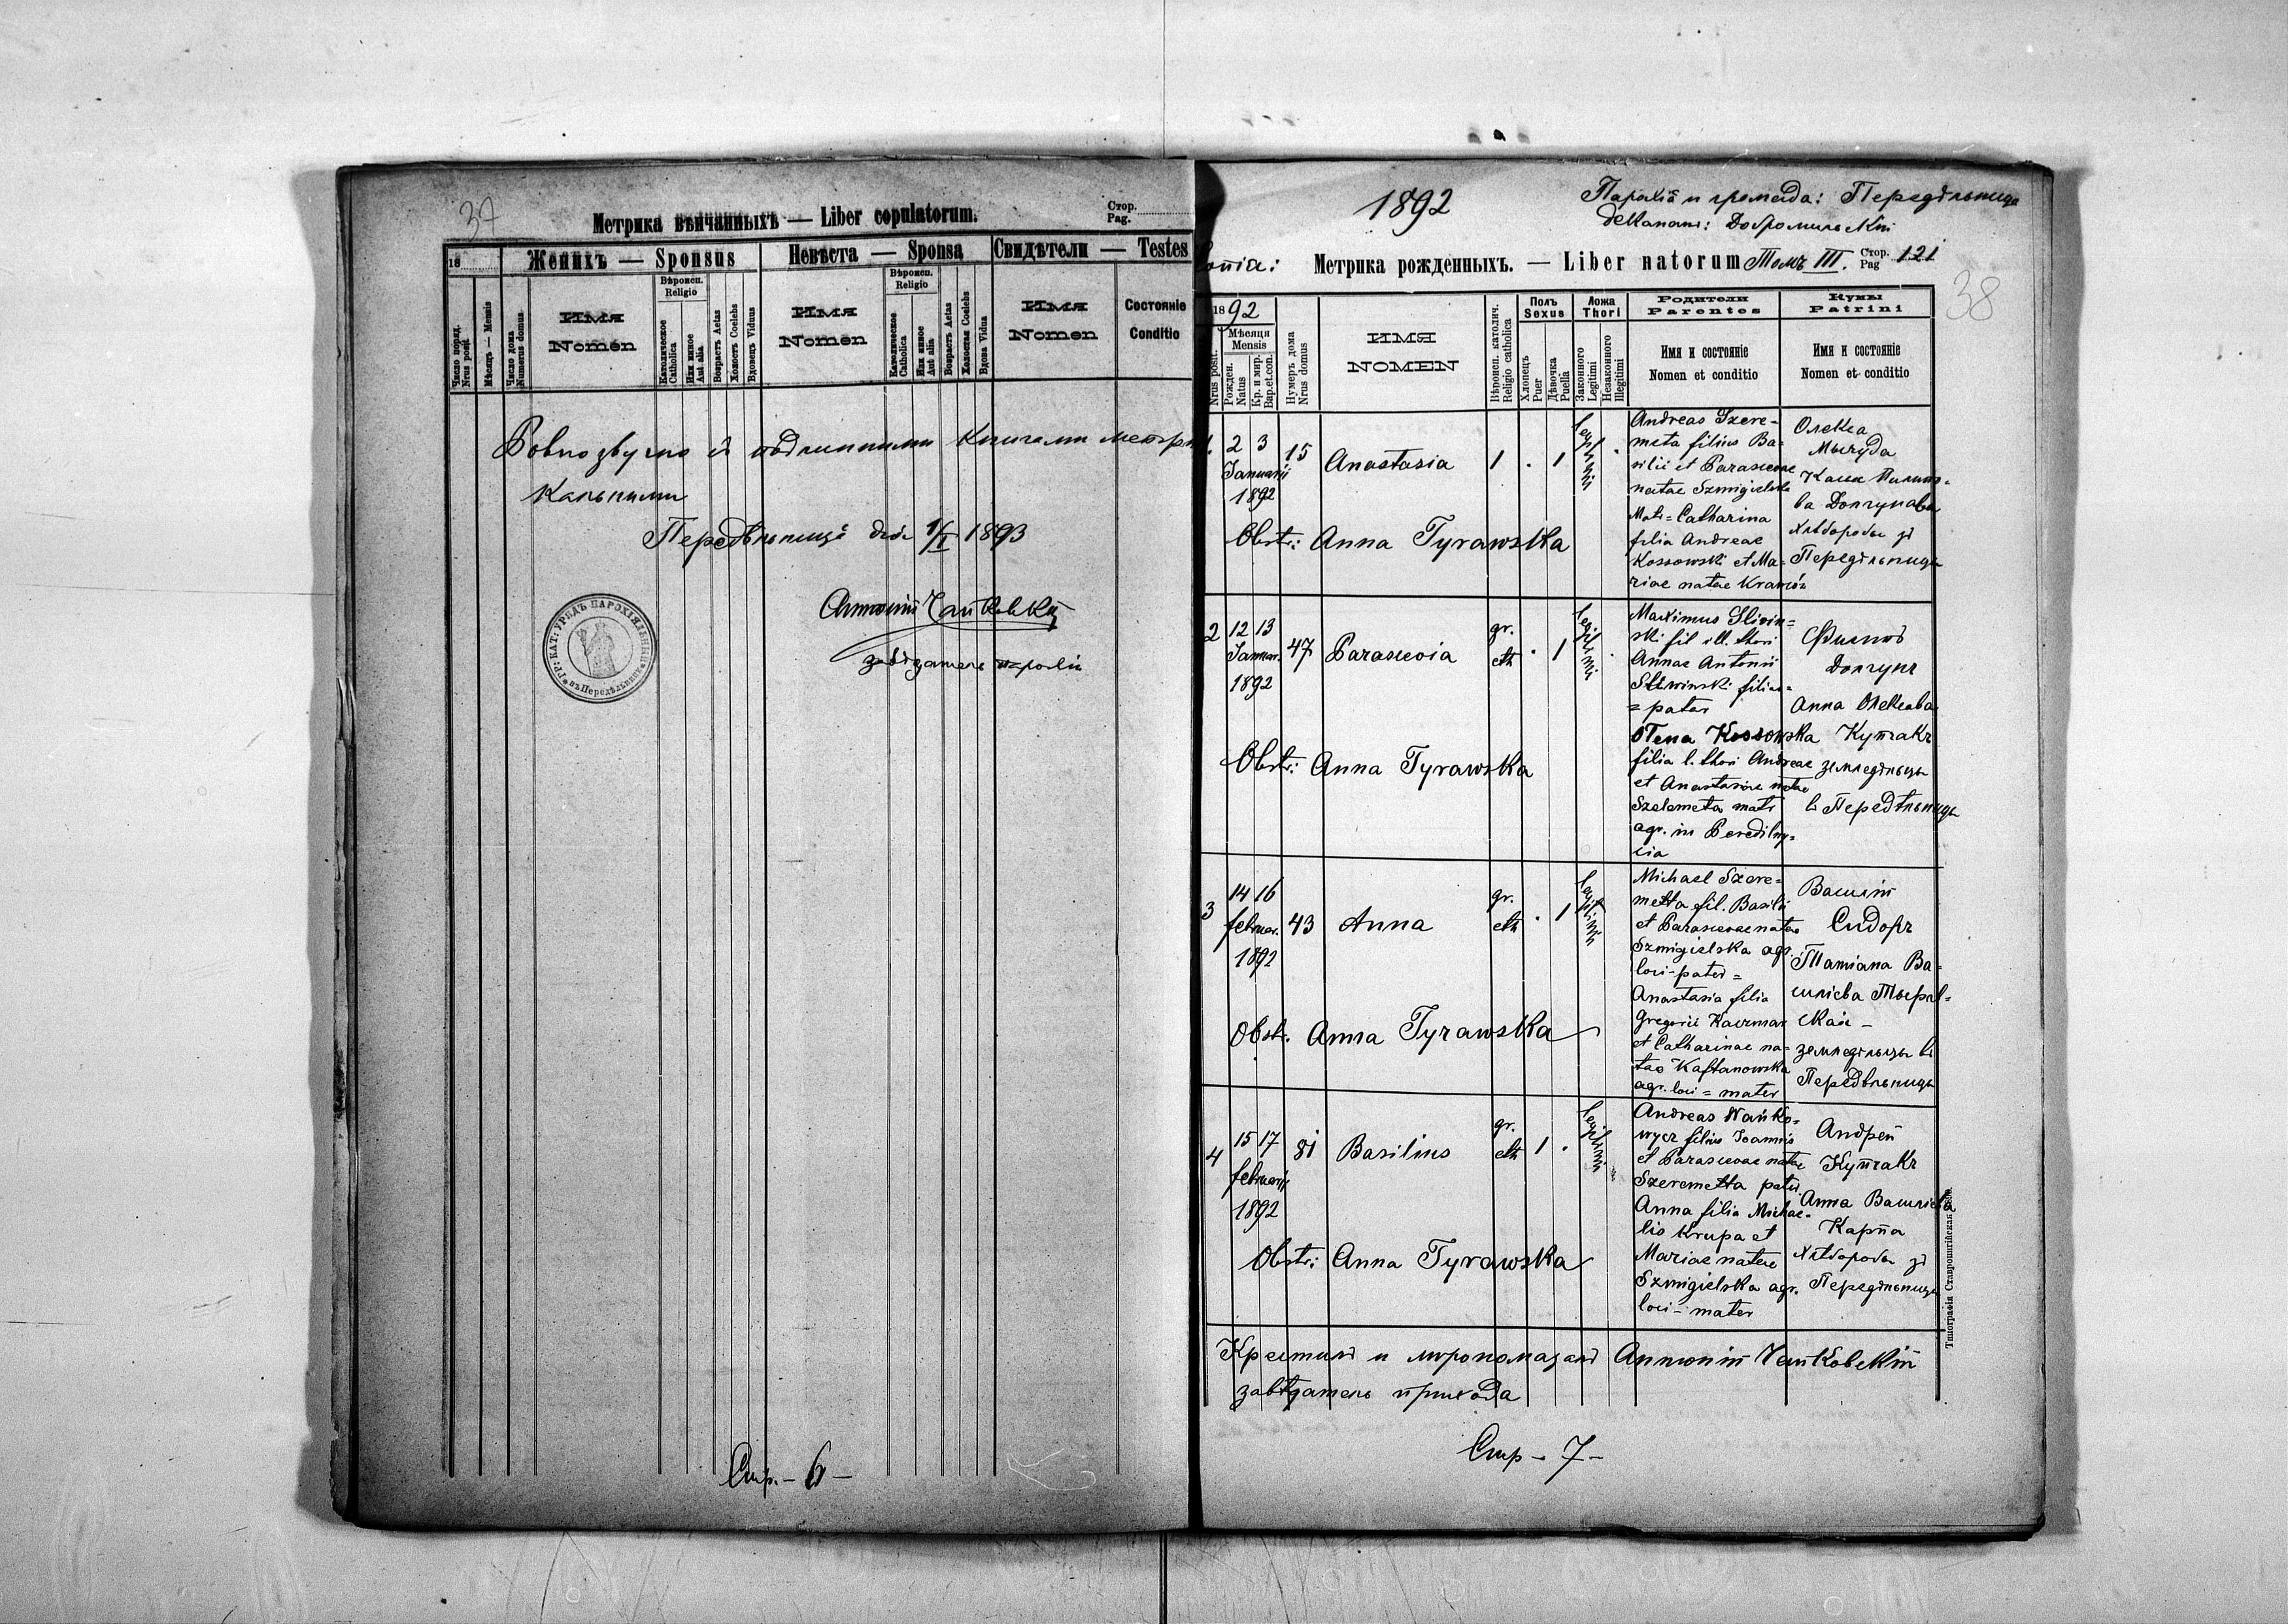 37
Метрика вѣнчанныхъ — Liber copulatorum.
Стор.
Pag.
18
Женихъ — Sponsus
Невѣста — Sponsa
Свидѣтели — Testes
Число поряд.
Nrus posit.
Мѣсяцъ — Mensis
Число дома
Numerus domus
ИМЯ
Nomen
Вѣроисп.
Religio
Католическое
Catholica
Или иное
Aut alia
Возрастъ Aetas
Холостъ Coelebs
Вдовецъ Viduus
ИМЯ
Nomen
Вѣроисп.
Religio
Католическое
Catholica
Или иное
Aut alia
Возрастъ Aetas
Холостая Coelebs
Вдова Vidua
ИМЯ
Nomen
Состояніе
Conditio
Ровнозвучно съ подлинными книгами метри
кальними
Передѣльница дня 1/I 1893
Антоній Чайковскій
завѣдатель парохіи
ГР: КАТ: УРЯДЪ ПАРОХІЯЛЬНЫЙ
въ Передѣльници
Стр. - 6 -
1892
Парахія и громада: Передѣльница
деканатъ: Добромильскій
копія:
Метрика рожденныхъ. — Liber natorum Томъ III. Стор. Pag 121
38
1892
Nrus posit.
Мѣсяця
Mensis
Рожден.
Natus
Кр. и мир.
Bap. et con.
Нумеръ дома
Nrus domus
ИМЯ
NOMEN
Вѣроисп. католич.
Religio catholica
Полъ
Sexus
Хлопецъ
Puer
Дѣвочка
Puella
Ложа
Thori
Законного
Legitimi
Незаконного
Illegitimi
Родители
Parentes
Имя и состояніе
Nomen et conditio
Кумы
Patrini
Имя и состояніе
Nomen et conditio
1. 2 3
Januarii
1892
15
Anastasia
1 . 1
legitimi
Andreas Szere=
meta filius Ba=
silii et Parascevae
natae Szmigielska
Mat= Catharina
filia Andreae
Kossowski et Ma=
riae natae
Олекса
Мычуда
Ва=
ва Довгунава
Хлѣборобы зъ
Передѣльницы
Obstr: Anna Tyrawska
2 12 13
Januar.
1892
47
Parascevia
gr.
cth
. 1
legitimi
Maximus Sliwin=
ski fil ill. thori
Annae Antonii
Sliwinski filiae=
= pater
Олена Kossowska
filia l. thori Andreae
et Anastasiae natae
Szeremeta mat.
agr. in Peredilny=
cia
Филипъ
Довгунъ
Анна Олексова
Купчакъ
земледѣльцы
въ Передѣльницы
Obstr: Anna Tyrawska
3 14 16
februar.
1892
43
Anna
gr.
cth
. 1
legitimi
Michael Szere=
metta fil. Basilii
et Parascevae natae
Szmigielska agr.
loci-pater=
Anastasia filia
Gregorii Kaczmar
et Catharinae na=
tae Kaftanowska
agr. loci = mater
Василій
Сидоръ
Татіана Ва=
силіева Тырав=
скаи -
земледѣльцы въ
Передѣльницы
Obst. Anna Tyrawska
4 15 17
februarii
1892
81
Basilius
gr.
cth
1 .
legitimi
Andreas Wańko=
wycz filius Joannis
et Parascevae natae
Szeremetta pater.
Anna filia Michae=
lis Krupa et
Mariae natae
Szmigielska agr.
loci - mater
Андрей
Купчакъ
Анна Василіева
Карпа
Хлѣборобы зъ
Передѣльницы
Obstr: Anna Tyrawska
Крестилъ и миропомазалъ Антоній Чайковскій
завѣдатель прихода
Типографія Ставропигійская
Стр - 7 -